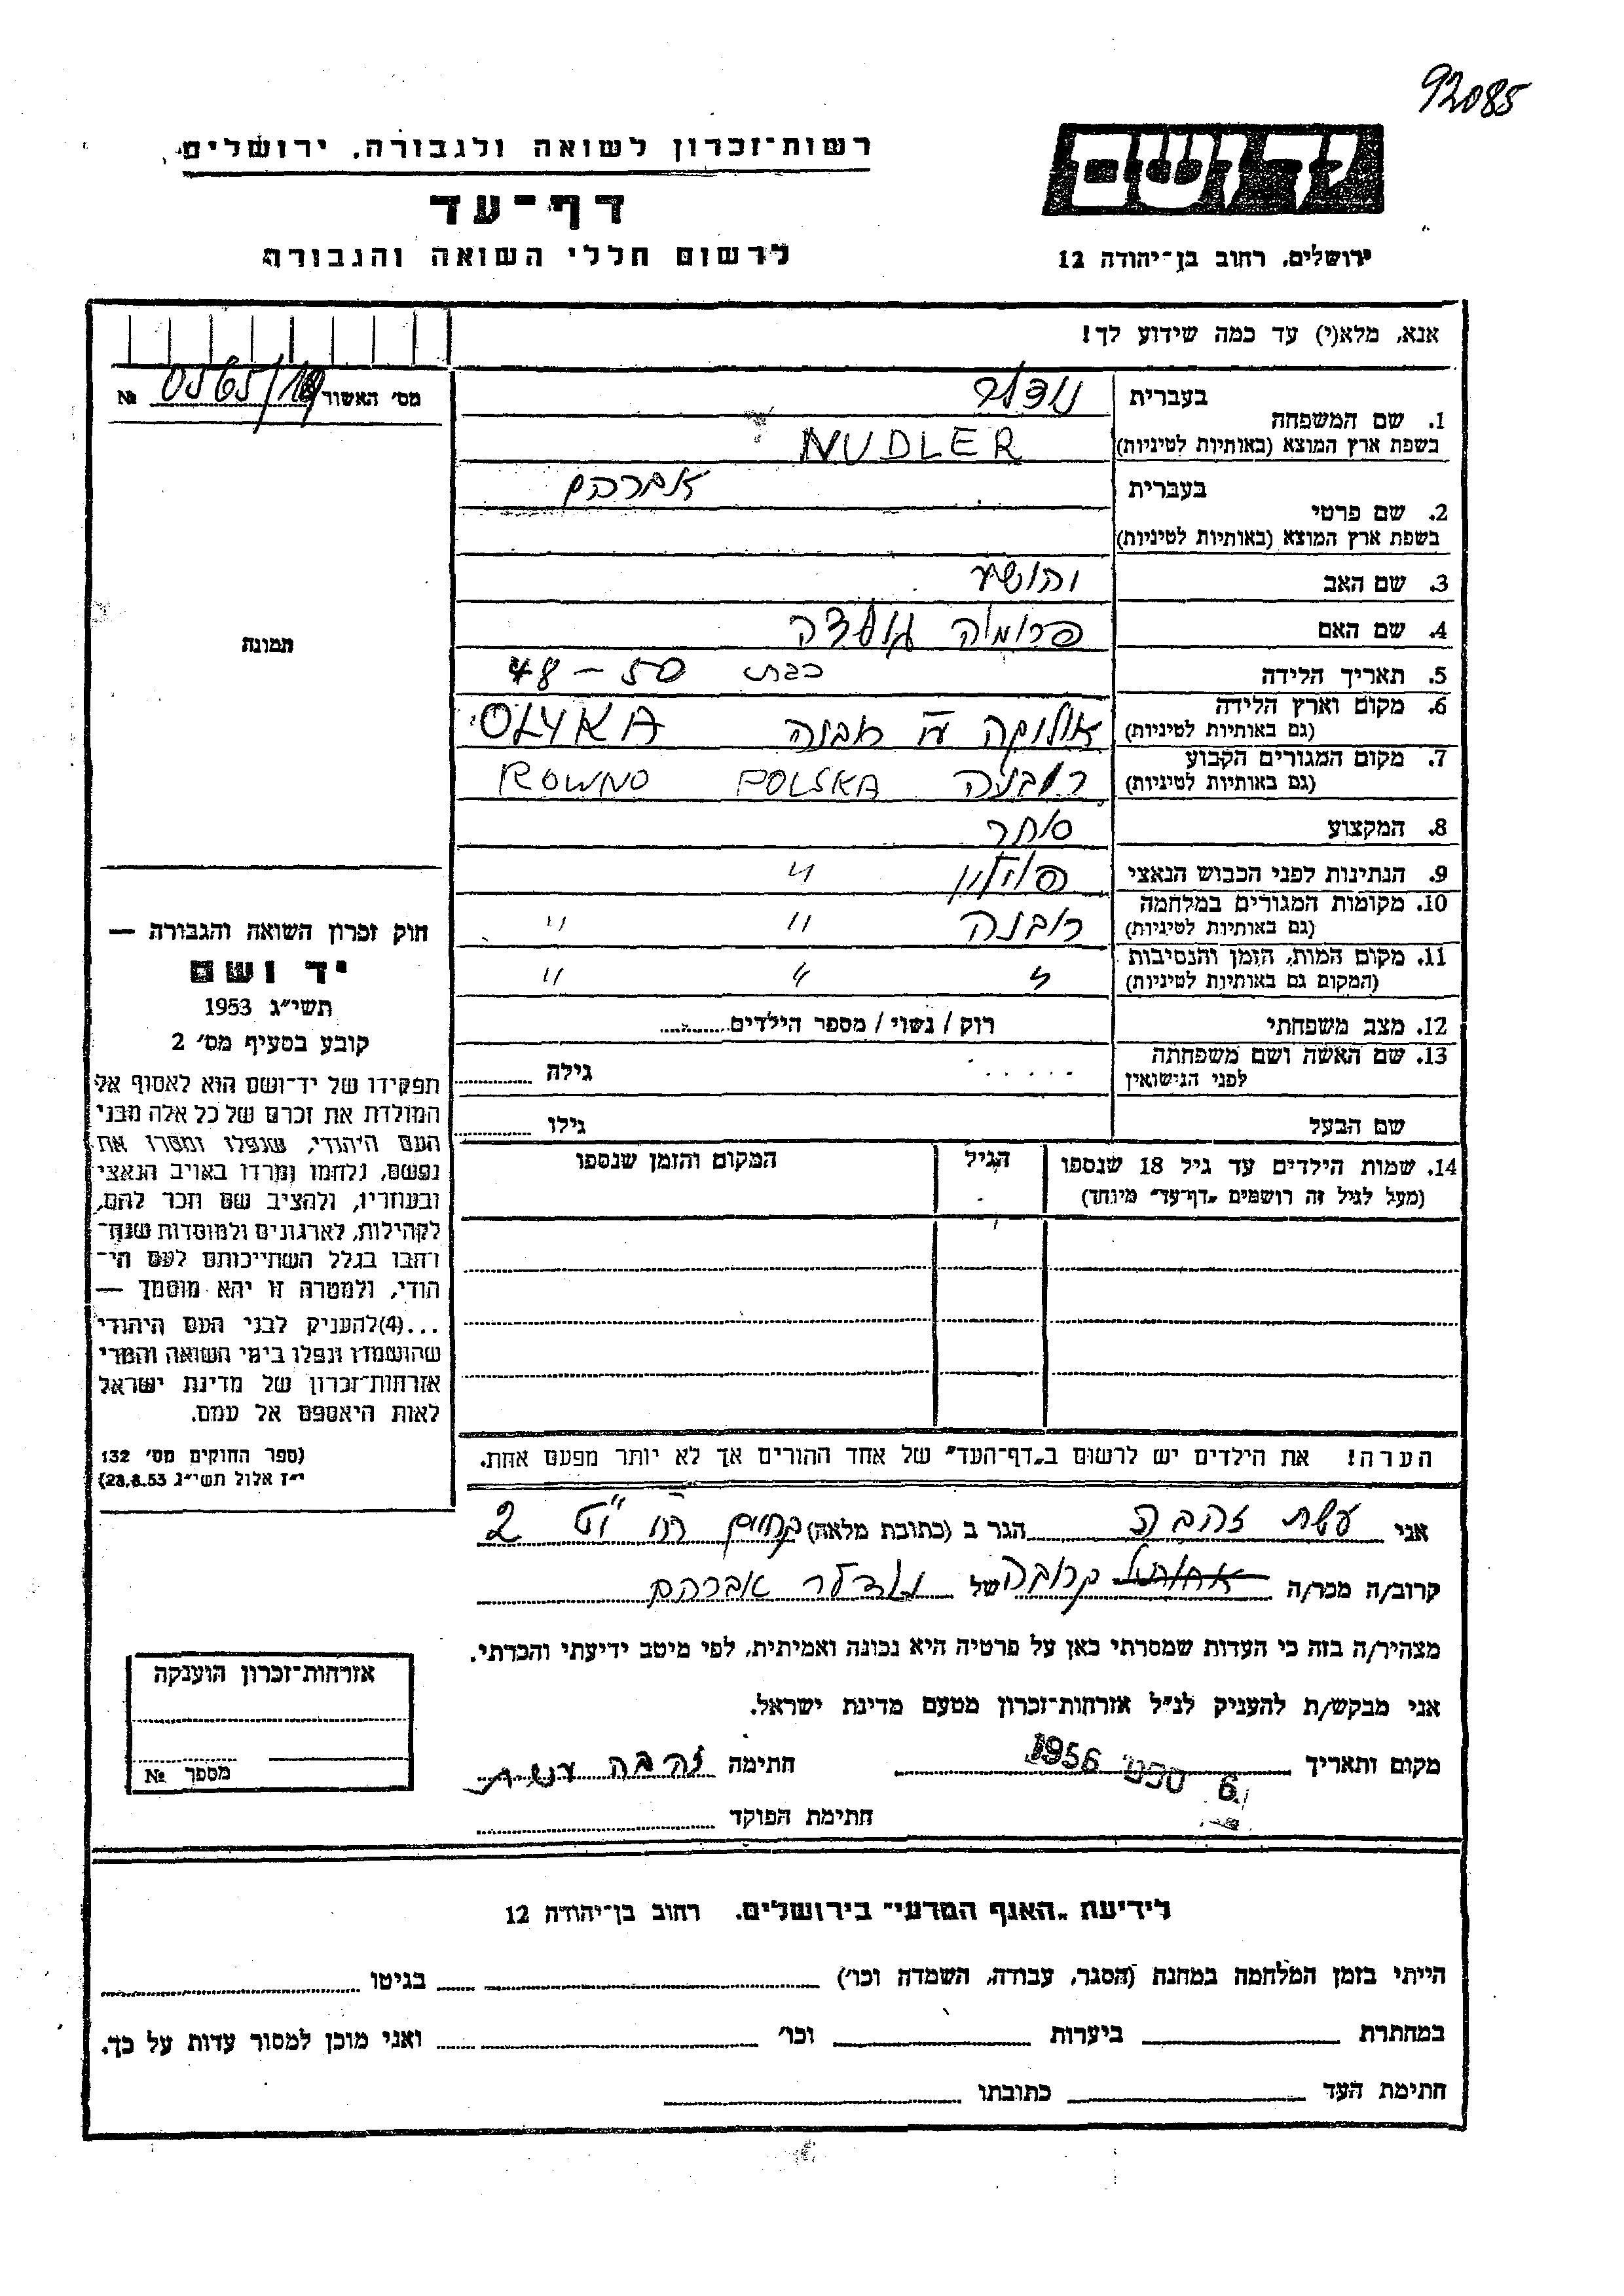 92085
יד ושם
ירושלים, רחוב בן־יהודה 12
רשות־זכרון לשואה ולגבורה, ירושלים
דף־עד
לרשום חללי השואה והגבורה
אנא, מלא(י) עד כמה שידוע לך!
מס׳ האשור № 0565/
1. שם המשפחה
בעברית נודלר
בשפת ארץ המוצא (באותיות לטיניות) NUDLER
2. שם פרטי
בעברית אברהם
בשפת ארץ המוצא (באותיות לטיניות)
3. שם האב יהושע
4. שם האם פרומה
5. תאריך הלידה כבת 50 – 48
6. מקום וארץ הלידה
(גם באותיות לטיניות) אוליקה OLYKA
7. מקום המגורים הקבוע
(גם באותיות לטיניות) רובנה POLSKA ROWNO
8. המקצוע סוחר
9. הנתינות לפני הכבוש הנאצי פולין "
10. מקומות המגורים במלחמה
(גם באותיות לטיניות) רובנה " "
11. מקום המות, הזמן והנסיבות
(המקום גם באותיות לטיניות) " " "
12. מצב משפחתי רוק / נשוי / מספר הילדים
13. שם האשה ושם משפחתה
לפני הנישואין
גילה
שם הבעל גילו
14. שמות הילדים עד גיל 18 שנספו
(מעל לגיל זה רושמים „דף־עד" מיוחד)
הגיל
המקום והזמן שנספו
הערה! את הילדים יש לרשום ב„דף־העד" של אחד ההורים אך לא יותר מפעם אחת.
תמונה
חוק זכרון השואה והגבורה —
יד ושם
תשי״ג 1953
קובע בסעיף מס׳ 2
תפקידו של יד־ושם הוא לאסוף אל
המולדת את זכרם של כל אלה מבני
העם היהודי, שנפלו ומסרו את
נפשם, נלחמו ומרדו באויב הנאצי
ובעוזריו, ולהציב שם וזכר להם,
לקהילות, לארגונים ולמוסדות שנח־
רבו בגלל השתייכותם לעם הי־
הודי, ולמטרה זו יהא מוסמך —
...(4)להעניק לבני העם היהודי
שהושמדו ונפלו בימי השואה והמרי
אזרחות־זכרון של מדינת ישראל
לאות היאספם אל עמם.
(ספר החוקים מס׳ 132
י״ז אלול תשי״ג 28.8.53)
אני עשת זהבה הגר ב (כתובת מלאה) 2
קרוב/ה מכר/ה קרובה של נודלר אברהם
מצהיר/ה בזה כי העדות שמסרתי כאן על פרטיה היא נכונה ואמיתית, לפי מיטב ידיעתי והכרתי.
אני מבקש/ת להעניק לנ״ל אזרחות־זכרון מטעם מדינת ישראל.
מקום ותאריך 6. ספט׳ 1956 חתימה זהבה עשת
חתימת הפוקד
אזרחות־זכרון הוענקה
מספר №
לידיעת „האגף המדעי" בירושלים. רחוב בן־יהודה 12
הייתי בזמן המלחמה במחנה (הסגר, עבודה, השמדה וכו׳) בגיטו
במחתרת ביערות וכו׳ ואני מוכן למסור עדות על כך.
חתימת העד כתובתו